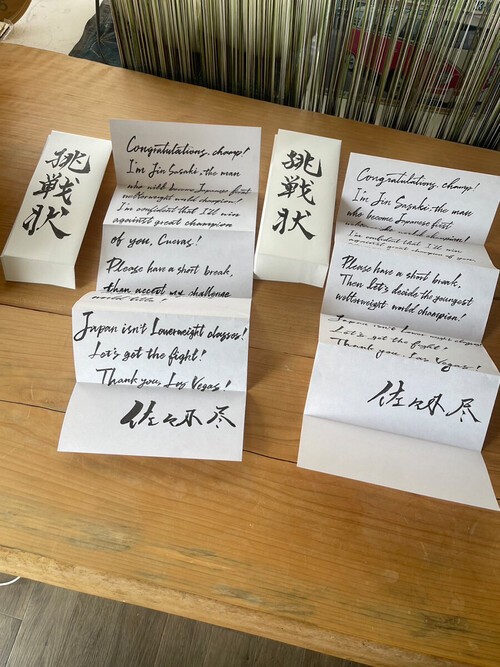 挑戦状
Congratulations, champ!
I'm Jin Sasaki, the man
who will become Japanese first
welterweight world champion!
I'm confident that I'll win
against great champion
of you, Cuevas!
Please have a short break,
then accept my challenge
world title!
Japan isn't Lowerweight classes!
Let's got the fight!
Thank you, Las Vegas!
佐々木尽
挑戦状
Congratulations, champ!
I'm Jin Sasaki, the man
who become Japanese first
world champion!
I'm confident that I'll
against great champion of
Please have a short break,
Then let's decide the youngest
welterweight world champion!
Japan isn't Lowerweight classes
Let's got the fight!
Thank you, Las Vegas!
佐々木尽